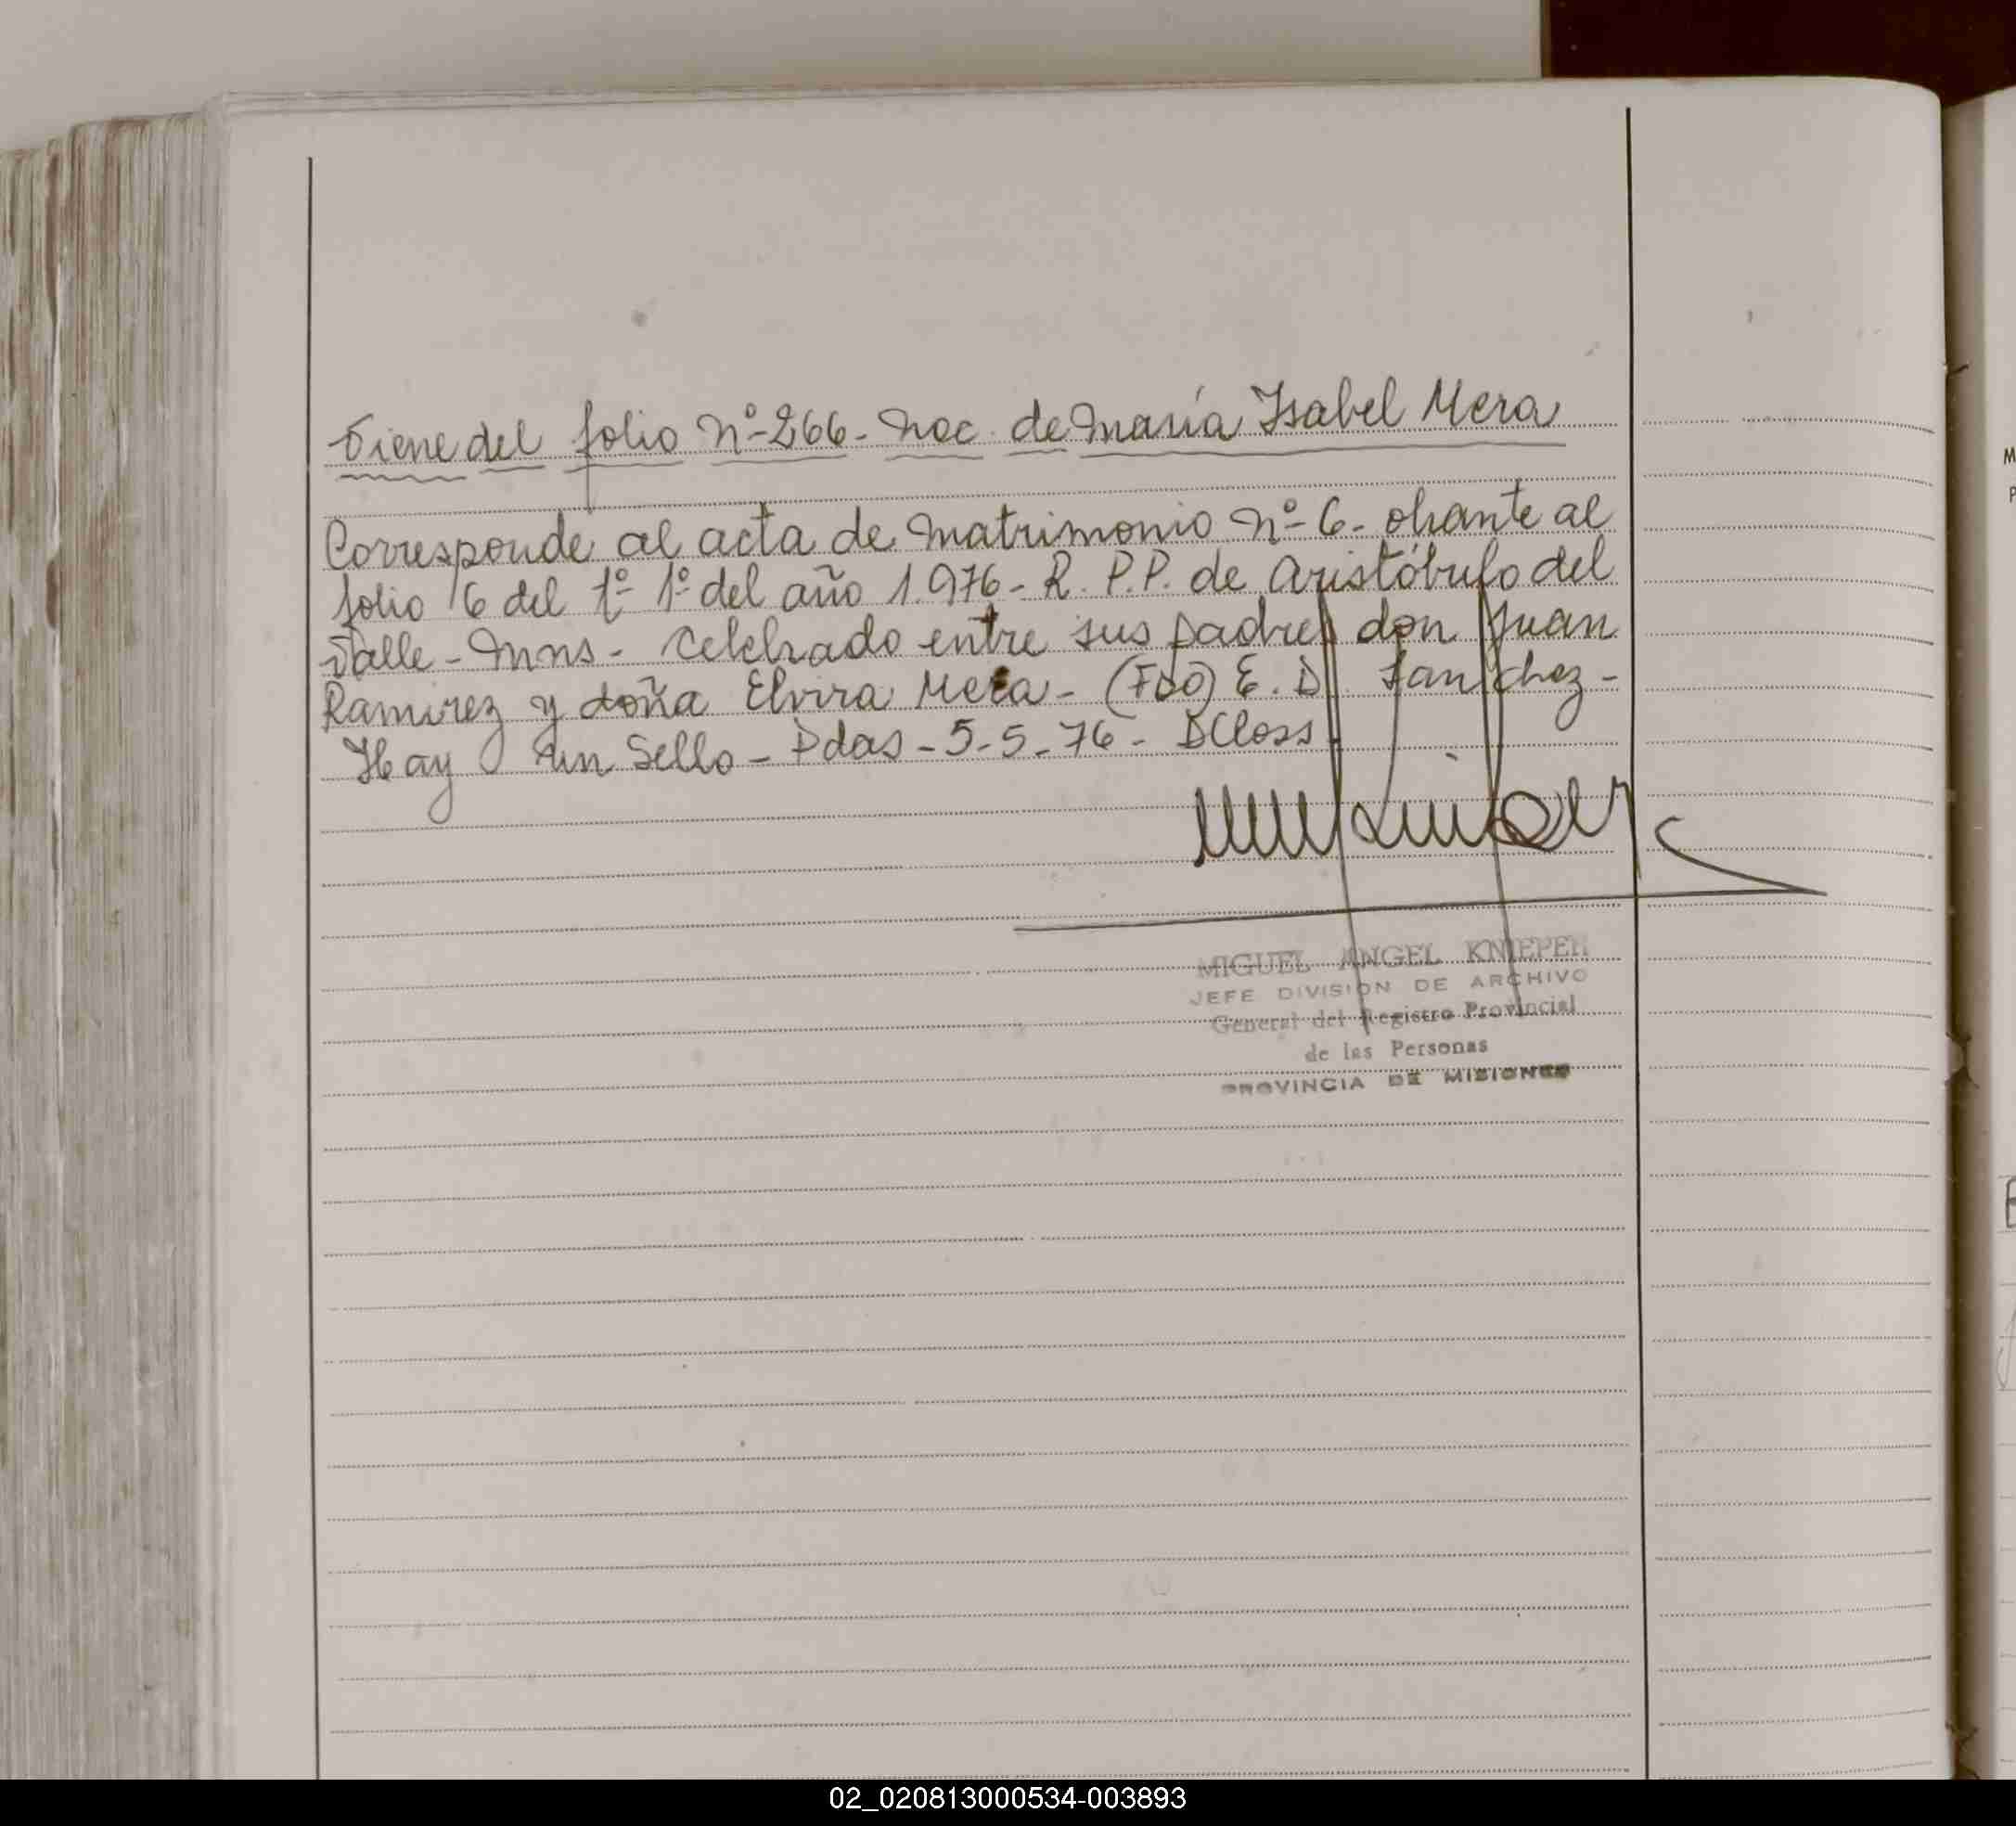 Viene del folio Nº 266 - Nac. de María Isabel Mera
Corresponde al acta de matrimonio Nº 6 - obrante al
folio 6 del tº 1º del año 1.976 - R. P.P. de Aristóbulo del
Valle - Mns - Celebrado entre sus padres don Juan
Ramirez y doña Elvira Mera - (Fdo) E. D. Sanchez -
Hay un Sello - Pdas - 5-5-76 - DCloss
MIGUEL ANGEL KNIEPER
JEFE DIVISION DE ARCHIVO
General del Registro Provincial
de las Personas
PROVINCIA DE MISIONES
02_020813000534-003893